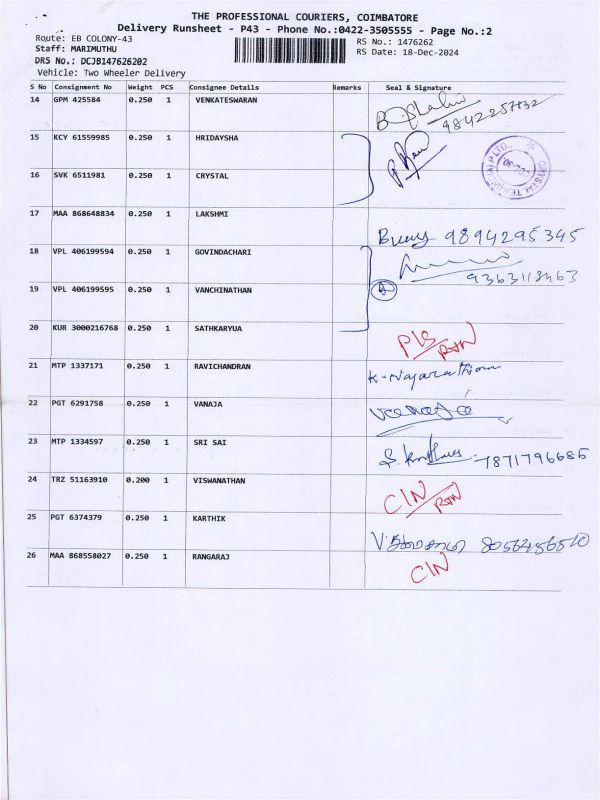 THE PROFESSIONAL COURIERS, COIMBATORE
Delivery Runsheet - P43 - Phone No.:0422-3505555 - Page No.:2
Route: EB COLONY-43
RS No.: 1476262
Staff: MARIMUTHU
RS Date: 18-Dec-2024
DRS No.: DCJB147626202
Vehicle: Two Wheeler Delivery
S No Consignment No Weight PCS Consignee Details Remarks Seal & Signature
14 GPM 425584 0.250 1 VENKATESWARAN
9842257132
15 KCY 61559985 0.250 1 HRIDAYSHA
16 SVK 6511981 0.250 1 CRYSTAL
17 MAA 868648834 0.250 1 LAKSHMI
9894295345
18 VPL 406199594 0.250 1 GOVINDACHARI
9363118463
19 VPL 406199595 0.250 1 VANCHINATHAN
20 KUR 3000216768 0.250 1 SATHKARYUA
P/S RTN
21 MTP 1337171 0.250 1 RAVICHANDRAN
22 PGT 6291758 0.250 1 VANAJA
23 MTP 1334597 0.250 1 SRI SAI
7871796685
24 TRZ 51163910 0.200 1 VISWANATHAN
CIN RTN
25 PGT 6374379 0.250 1 KARTHIK
26 MAA 868558027 0.250 1 RANGARAJ
CIN